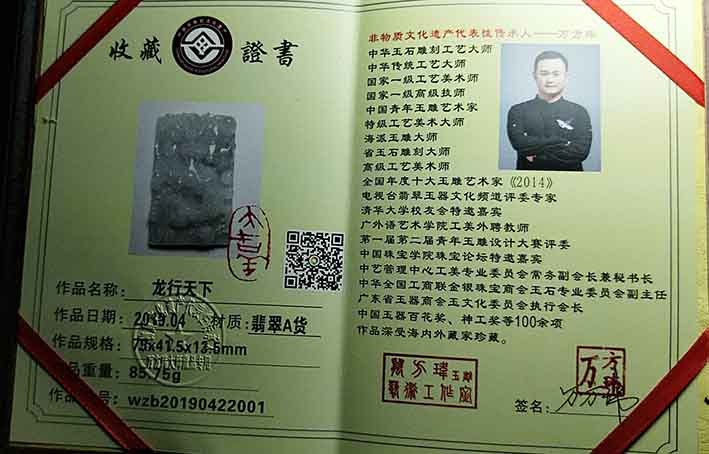 收藏 證書
作品名称： 龙行天下
作品日期： 2019.04 材质: 翡翠A货
作品规格： 79x41.5x13.5mm
作品重量： 85.75g
作品 号： wzb20190422001
非物质文化遗产代表性传承人——万方玮
中华玉石雕刻工艺大师
中华传统工艺大师
国家一级工艺美术师
国家一级高级技师
中国青年玉雕艺术家
特级工艺美术大师
海派玉雕大师
省玉石雕刻大师
高级工艺美术师
全国年度十大玉雕艺术家《2014》
电视台翡翠玉器文化频道评委专家
清华大学校友会特邀嘉宾
广外语艺术学院工美外聘教师
第一届第二届青年玉雕设计大赛评委
中国珠宝学院珠宝论坛特邀嘉宾
中艺管理中心工美专业委员会常务副会长兼秘书长
中华全国工商联金银珠宝商会玉石专业委员会副主任
广东省玉器商会玉文化委员会执行会长
中国玉器百花奖、神工奖等100余项
作品深受海内外藏家珍藏。
萬方瑋玉雕
翡翠工作室
万方玮
签名：